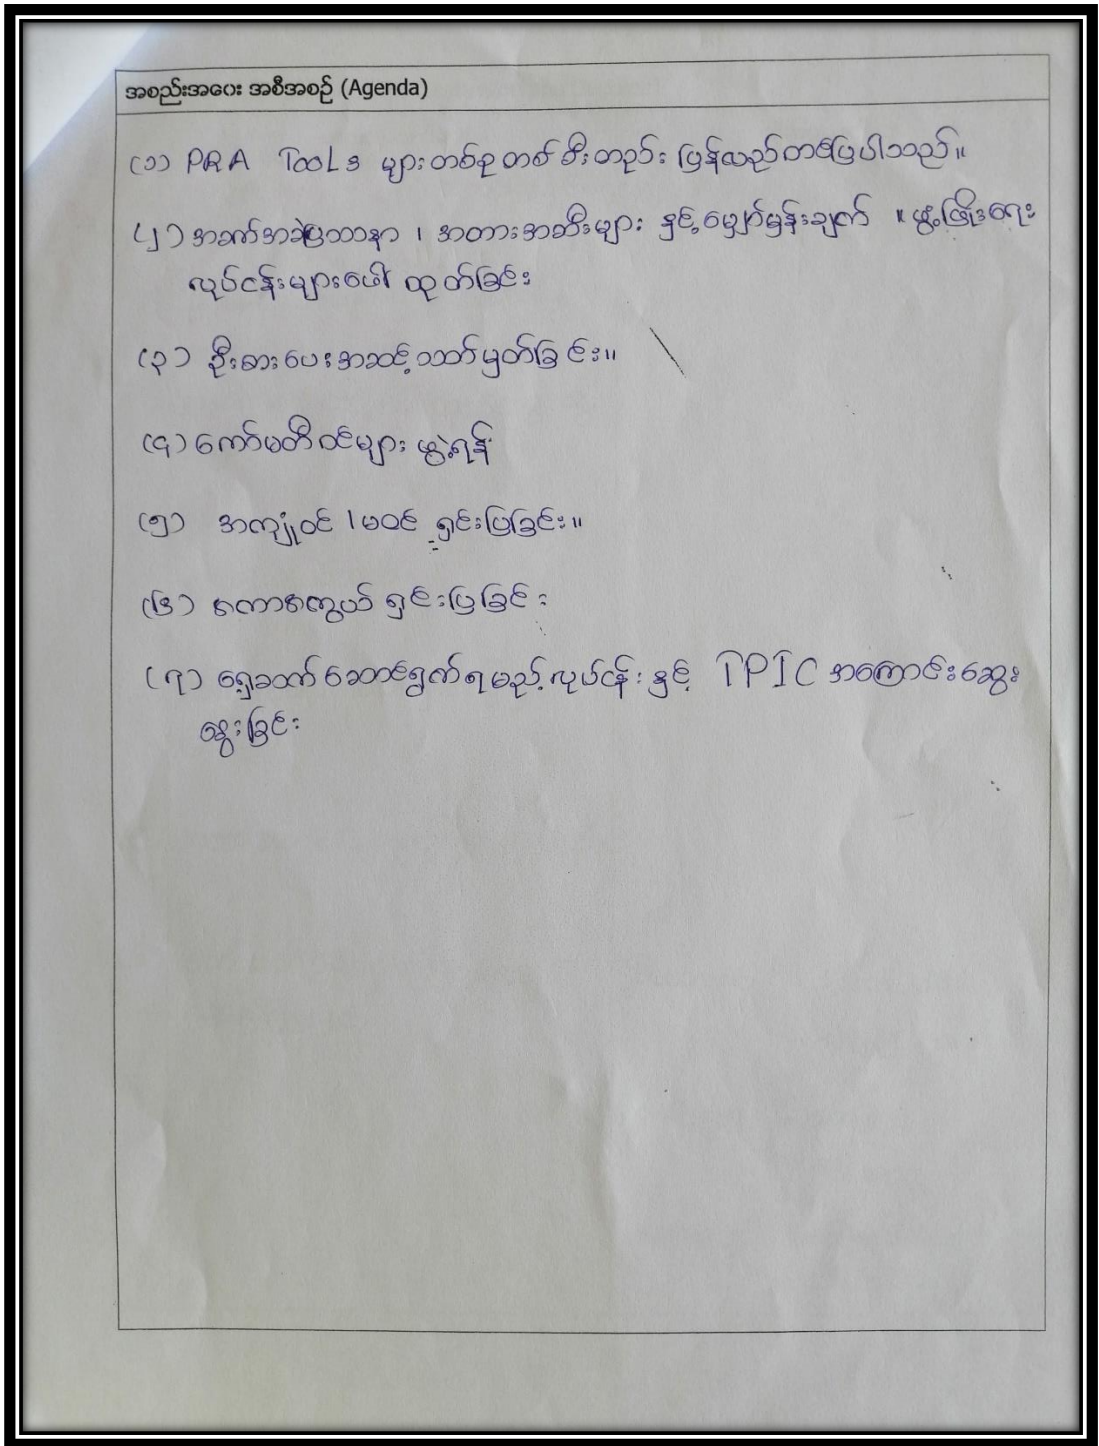 အစည်းအဝေး အစီအစဉ် (Agenda)
(၁) PRA TooLs များတစ်ခုတစ်စီးတည်း ပြန်လည်တင်ပြပါသည်။
(၂) အခက်အခဲပြဿနာ ၊ အတားအဆီးများ နှင့်မျှော်မှန်းချက် ။ ဖွံ့ဖြိုးရေး
လုပ်ငန်းများဖေါ် ထုတ်ခြင်း
(၃) ဦးစားပေးအဆင့်သတ်မှတ်ခြင်း။
(၄) ကော်မတီဝင်များ ဖွဲ့ရန်
(၅) အကျုံးဝင် / မဝင် ရှင်းပြခြင်း။
(၆) စကာစကွယ် ရှင်းပြခြင်း
(၇) ရှေ့ဆက်ဆောင်ရွက်ရမည့်လုပ်ငန်း နှင့် TPIC အကြောင်းဆွေး
နွေးခြင်း